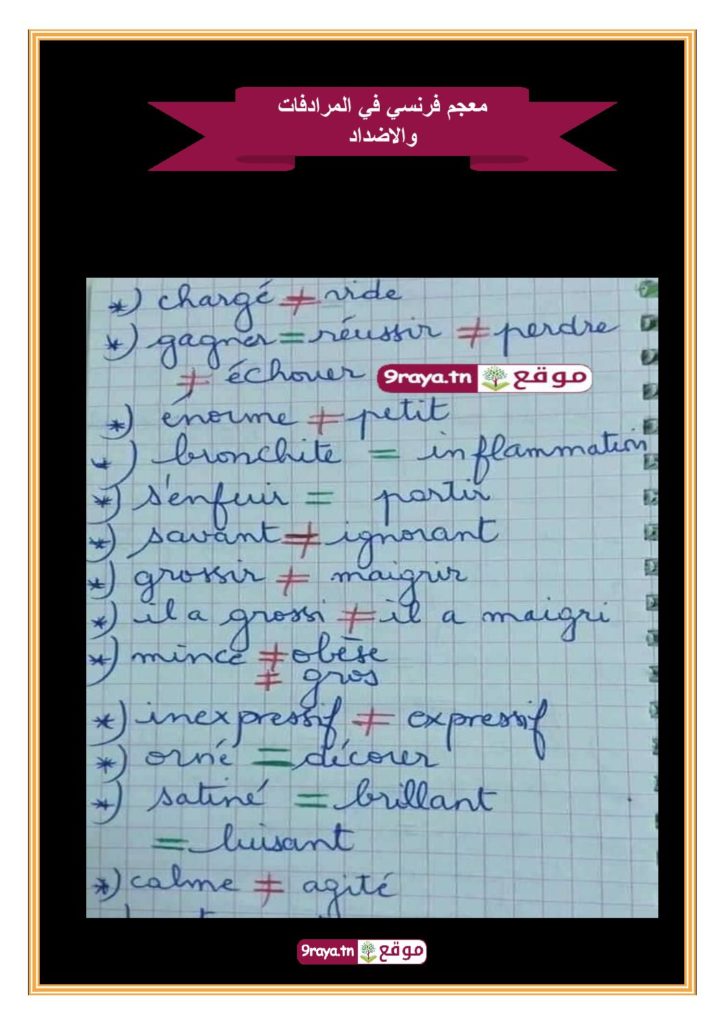 معجم فرنسي في المرادفات
والاضداد
*) chargé ≠ vide
*) gagner = réussir ≠ perdre
≠ échouer 9raya.tn موقع
*) énorme ≠ petit
*) bronchite = inflammation
*) s'enfuir = partir
*) savant ≠ ignorant
*) grossir ≠ maigrir
*) il a grossi ≠ il a maigri
*) mince ≠ obèse
≠ gros
*) inexpressif ≠ expressif
*) orné = décorer
*) satiné = brillant
= luisant
*) calme ≠ agité
9raya.tn موقع